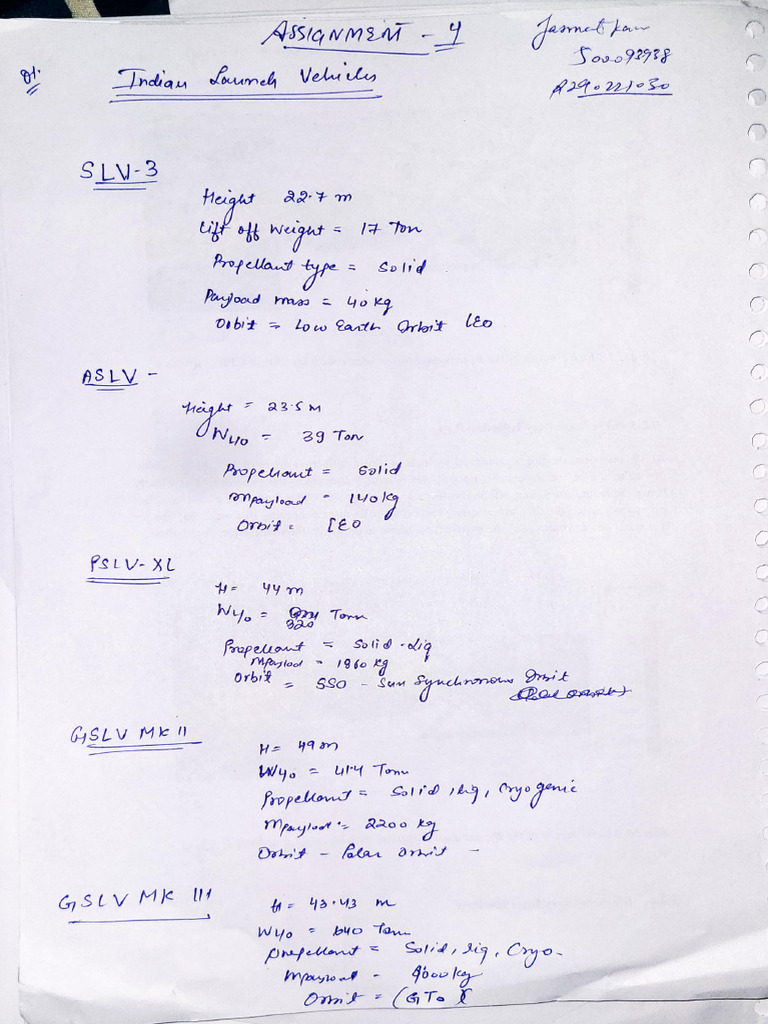 ASSIGNMENT - 4
Jasmeet Kaur
500093938
R290221030
Q1.
Indian Launch Vehicles
SLV-3
Height 22.7 m
Lift off Weight = 17 Ton
Propellant type = Solid
Payload mass = 40 kg
Orbit = Low Earth Orbit LEO
ASLV -
Height = 23.5 M
W4/0 = 39 Ton
Propellant = Solid
Mpayload = 140 kg
Orbit = LEO
PSLV-XL
H = 44 m
W4/0 = 320 Tonn
Propellant = Solid-Liq
Mpayload = 1860 kg
Orbit = SSO - Sun Synchronous Orbit
GSLV MK II
H = 49 m
W4/0 = 414 Tonn
Propellant = Solid, liq, Cryogenic
Mpayload = 2200 kg
Orbit - Polar Orbit -
GSLV MK III
H = 43.43 m
W4/0 = 640 Tonn
Propellant = Solid, liq, Cryo-
Mpayload - 4000 kg
Orbit = (GTO)